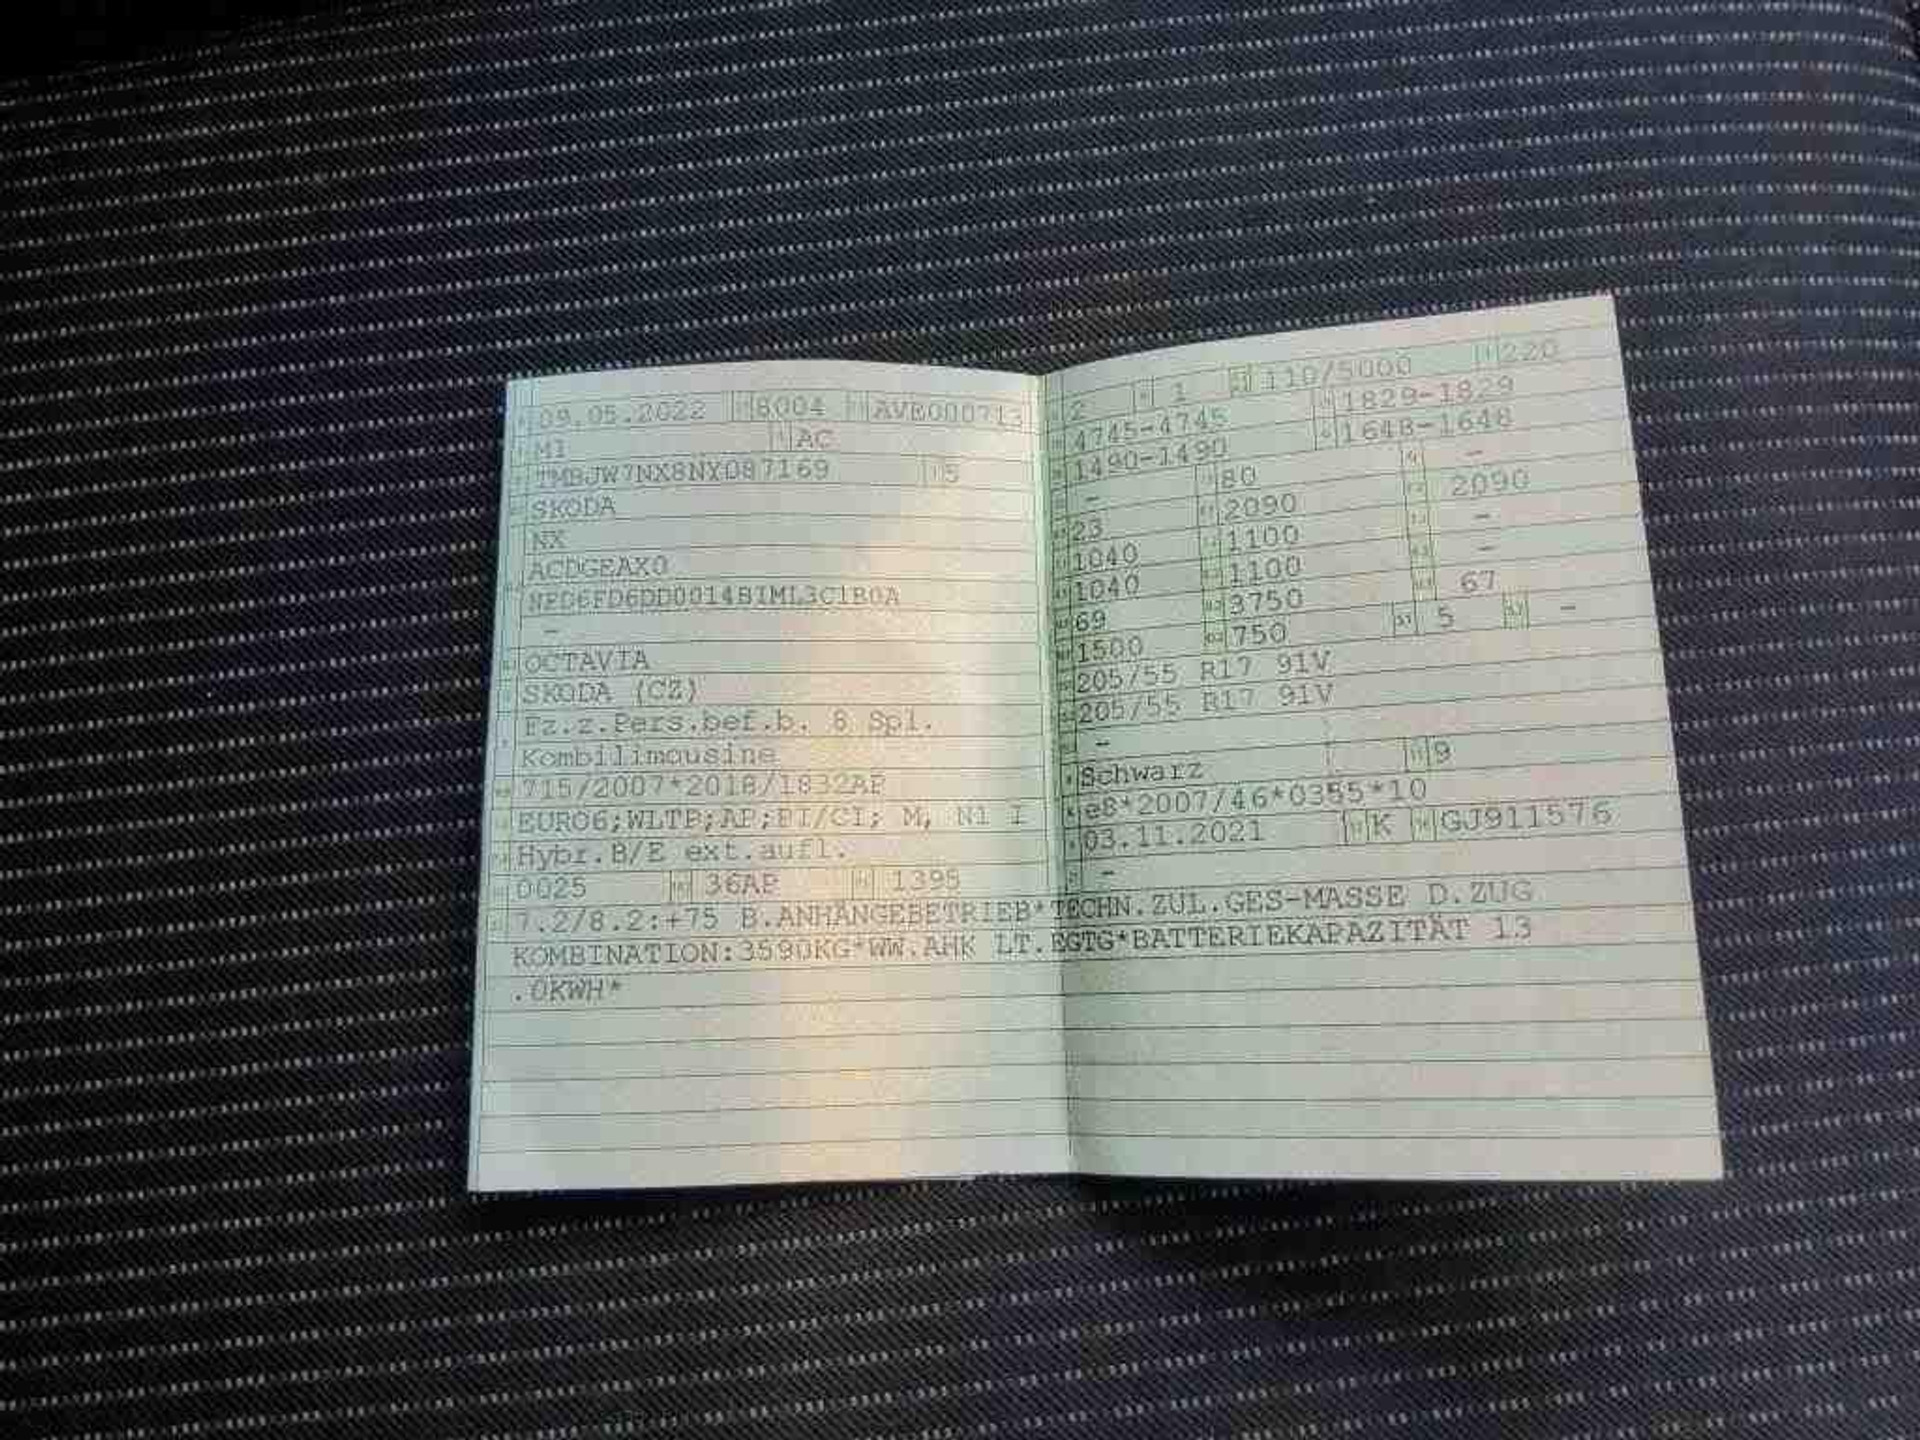 09.05.2022 8004 AVE000713
M1 AC
TMBJW7NX8NY087169 5
SKODA
NX
ACDGEAX0
NFD6FD6DD0014BIML3C1B0A
-
OCTAVIA
SKODA (CZ)
Fz.z.Pers.bef.b. 8 Spl.
Kombilimousine
715/2007*2018/1832AP
EURO6;WLTP;AP;PI/CI; M, N1 I
Hybr.B/E ext.aufl.
0025 36AP 1395
2 1 110/5000 220
4745-4745 1829-1829
1490-1490 1648-1648
- 80 -
23 2090 2090
1040 1100 -
1040 1100 -
69 3750 67
1500 750 5 -
205/55 R17 91V
205/55 R17 91V
-
Schwarz 9
e8*2007/46*0355*10
03.11.2021 K GJ911576
-
7.2/8.2:+75 B.ANHÄNGEBETRIEB*TECHN.ZUL.GES-MASSE D.ZUG
KOMBINATION:3590KG*WW.AHK LT.EGTG*BATTERIEKAPAZITÄT 13
.0KWH*